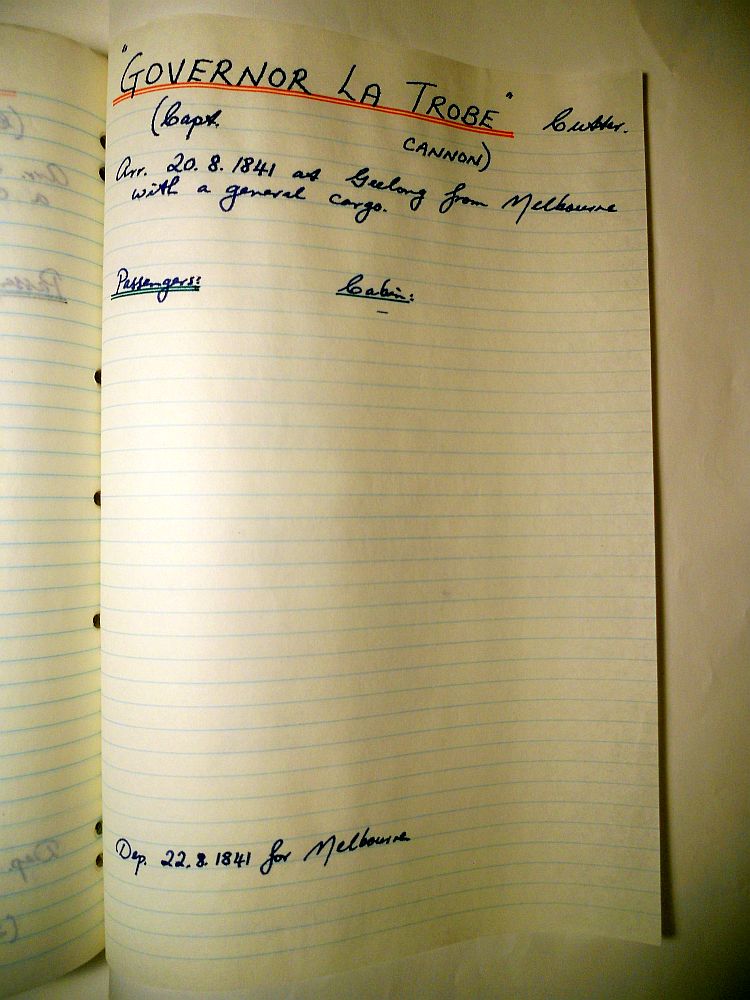 "GOVERNOR LA TROBE" Cutter.
(Capt. CANNON)
Arr. 20.8.1841 at Geelong from Melbourne
with a general cargo.
Passengers: Cabin:
–
Dep. 22.8.1841 for Melbourne